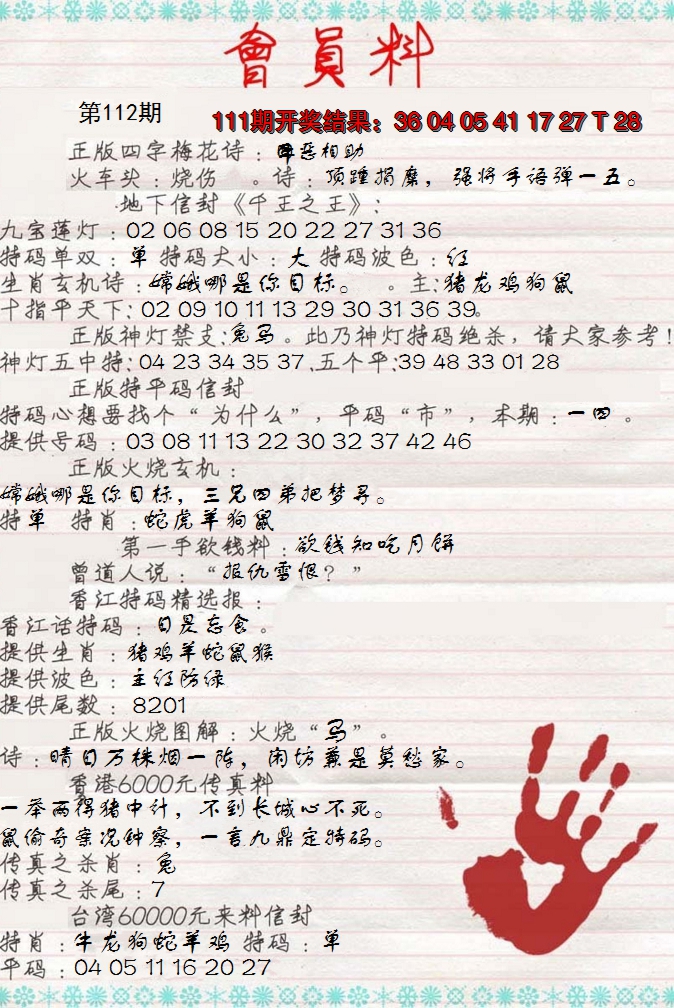 會員料
第112期
111期开奖结果：36 04 05 41 17 27 T 28
正版四字梅花诗：同恶相助
火车头：烧伤 。诗：顶踵捐糜，强将手語弹一五。
地下信封《千王之王》：
九宝莲灯：02 06 08 15 20 22 27 31 36
特码单双：单 特码大小：大 特码波色：红
生肖玄机诗：嫦娥哪是你目标。 。主：猪龙鸡狗鼠
十指平天下：02 09 10 11 13 29 30 31 36 39。
正版神灯禁支：兔马。此乃神灯特码绝杀，请大家参考！
神灯五中特：04 23 34 35 37.五个平：39 48 33 01 28
正版特平码信封
特码心想要找个“为什么”，平码“市”，本期：一四。
提供号码：03 08 11 13 22 30 32 37 42 46
正版火烧玄机：
嫦娥哪是你目标，三兄四弟把梦寻。
特单 特肖：蛇虎羊狗鼠
第一手欲钱料：欲钱知吃月饼
曾道人说：“报仇雪恨？”
香江特码精选报：
香江话特码：日昃忘食。
提供生肖：猪鸡羊蛇鼠猴
提供波色：主红防绿
提供尾数：8201
正版火烧图解：火烧“马”。
诗：晴日万株烟一阵，闲坊兼是莫愁家。
香港6000元传真料
一举两得猪中计，不到长城心不死。
鼠偷奇案况钟察，一言九鼎定特码。
传真之杀肖：兔
传真之杀尾：7
台湾60000元来料信封
特肖：牛龙狗蛇羊鸡 特码：单
平码：04 05 11 16 20 27